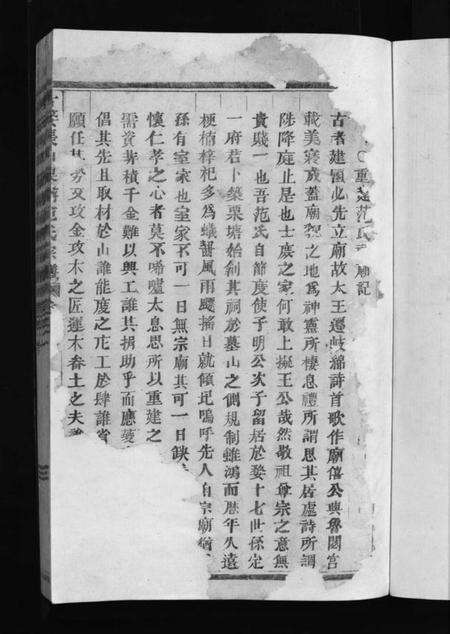 重建范氏祠廟記
古者建國必先立廟故太王遷岐緜詩首歌作廟僖公興魯閟宮
載美寢成蓋廟祝之地為神靈所棲息禮所謂思其居處詩所謂
陟降庭止是也士庶之家何敢上擬王公哉然敬祖尊宗之意無
貴賤一也吾范氏自節度使子明公次子留居於婺十七世孫定
一府君卜築栗塘始創其祠於墓山之側規制雖鴻而歷年久遠
梗楠梓杞多為蟻蠧風雨飄搖日就傾圮嗚呼先人自宗廟猶
孫有室家也室家不可一日無宗廟其可一日缺
懷仁孝之心者莫不唏噓太息思所以重建之
需貲非積千金難以興工誰其捐助乎而應蓃
倡其先且取材於山誰能度之庀工於肆誰當
願任其勞及攻金攻木之匠運木畚土之夫